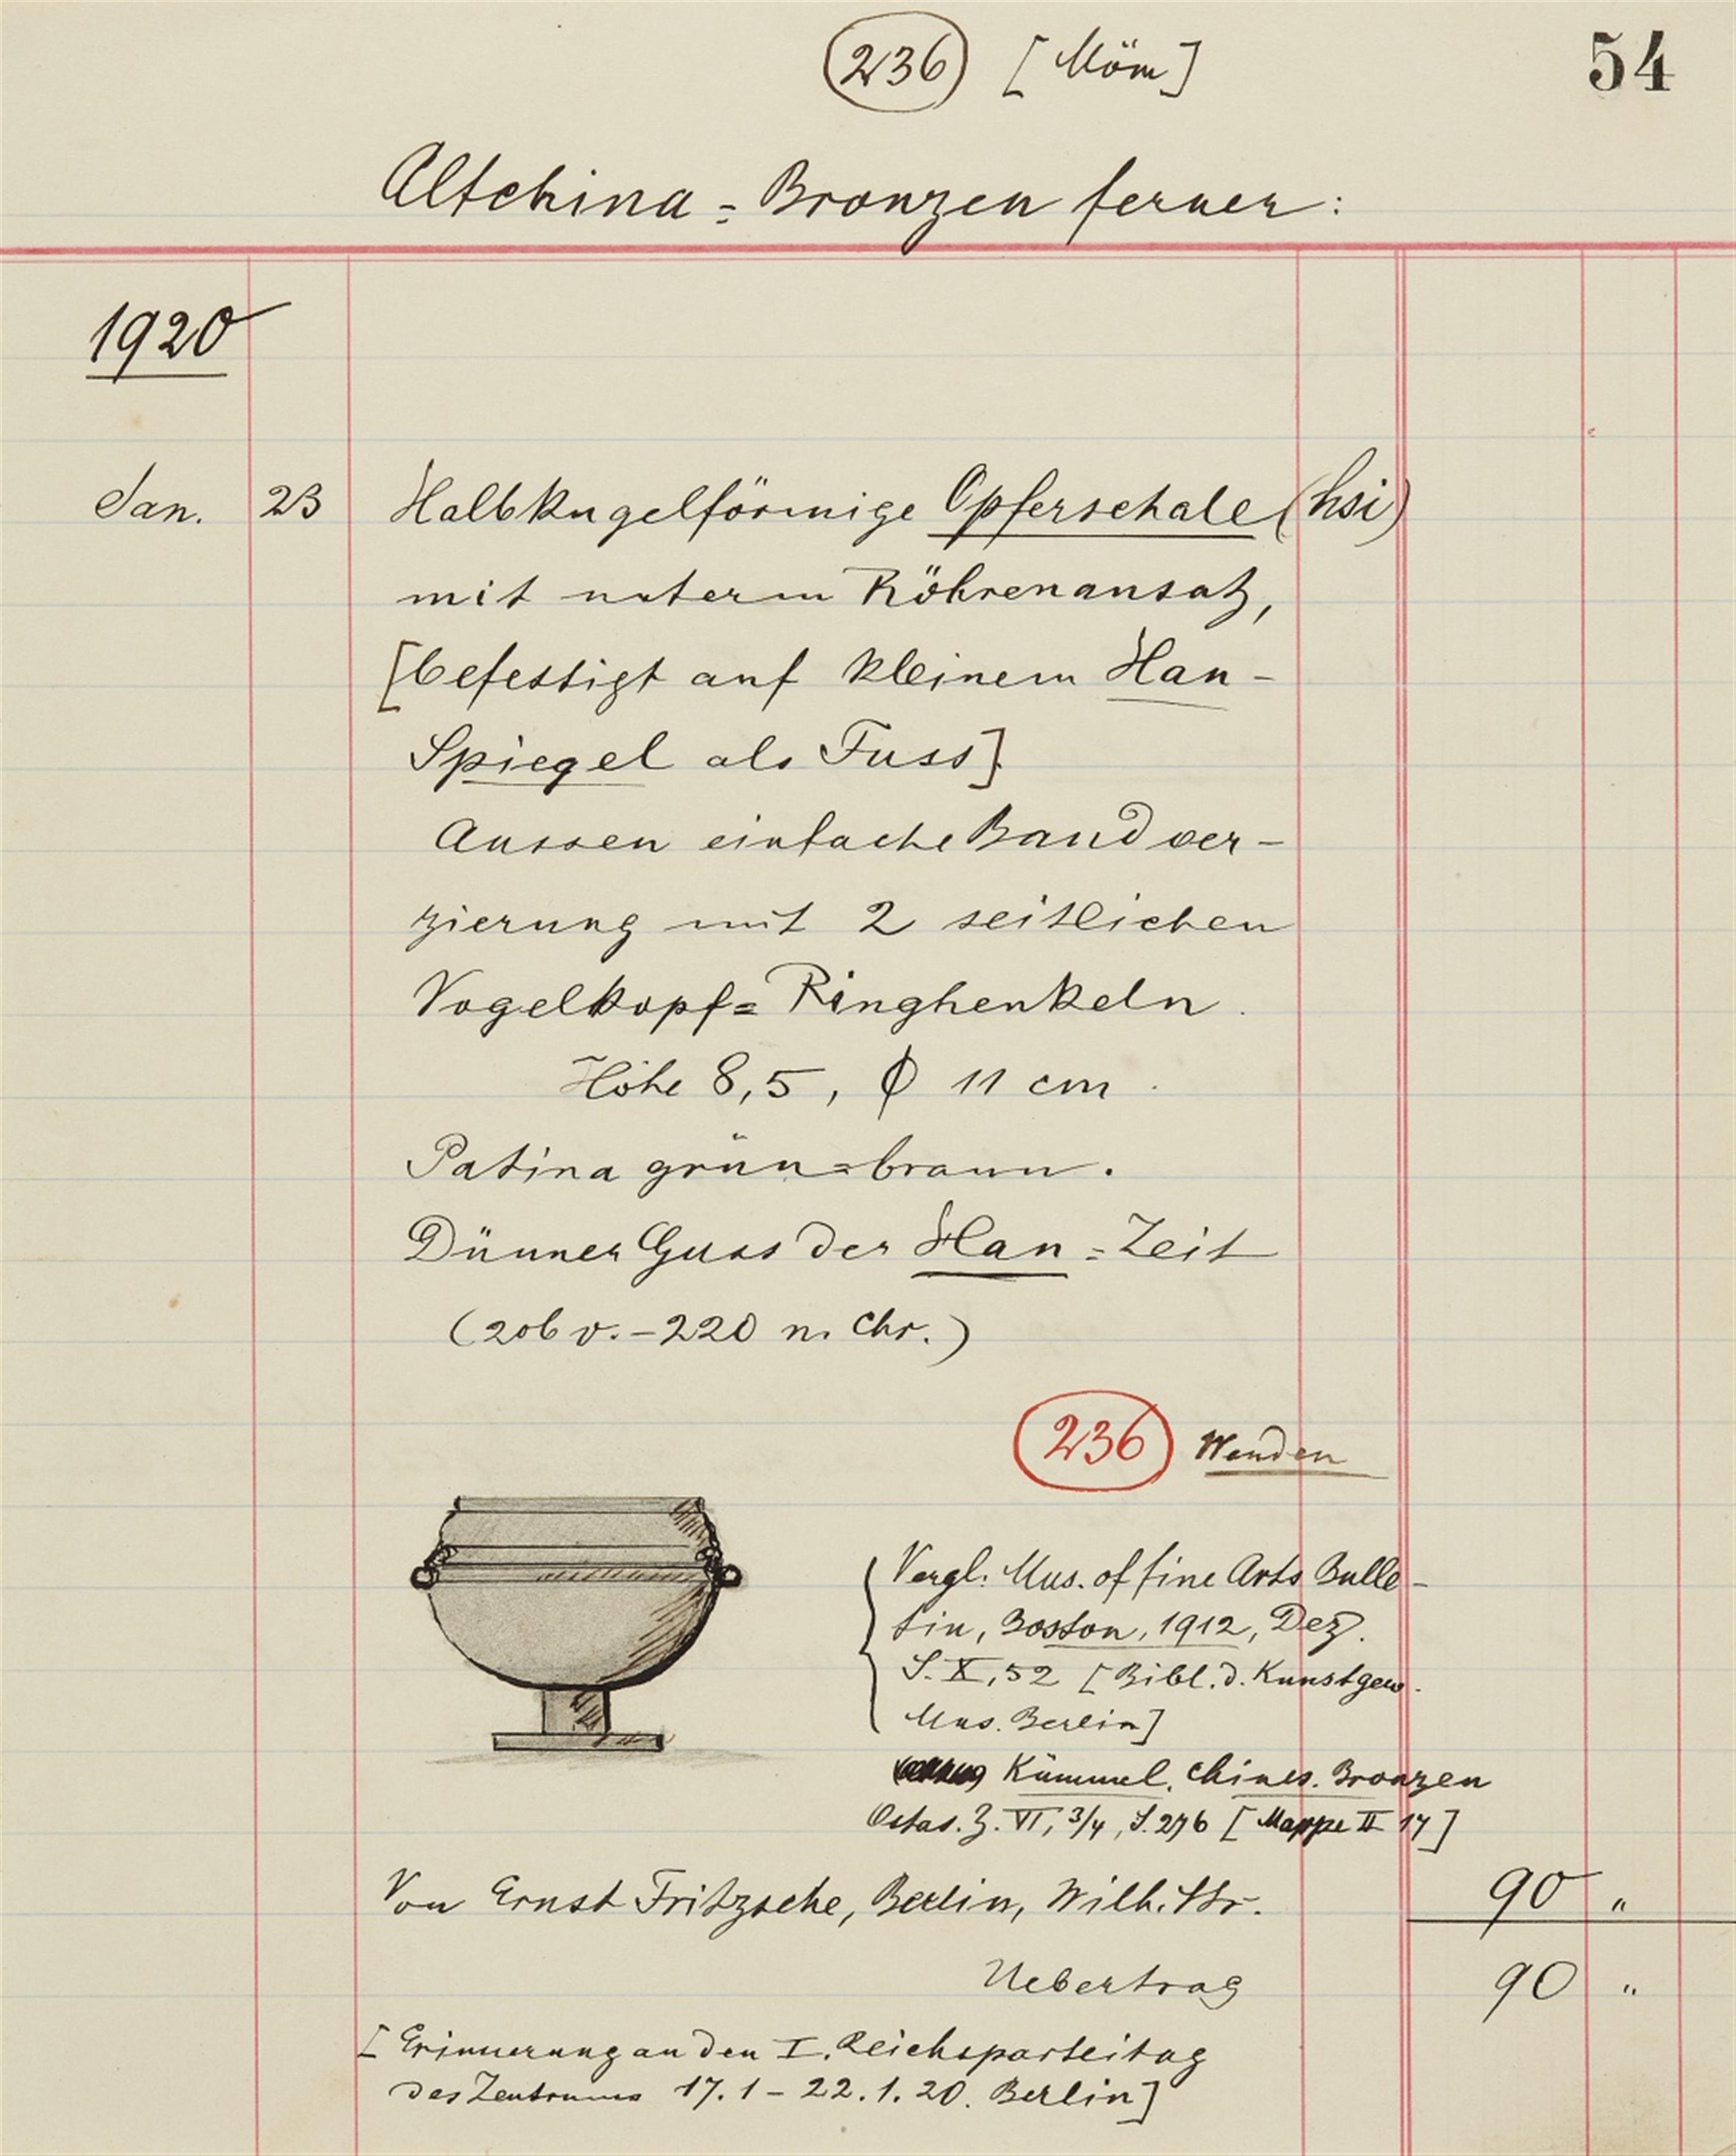 236 [Möm] 54
Altchina = Bronzen ferner:
1920
Jan. 23 Halbkugelförmige Opferschale (hsi)
mit unterm Röhrenansatz,
[befestigt auf kleinem Han-
Spiegel als Fuss]
Aussen einfache Bandver-
zierung mit 2 seitlichen
Vogelkopf= Ringhenkeln.
Höhe 8,5, ϕ 11 cm.
Patina grün=braun.
Dünner Guss der Han = Zeit
(206 v. - 220 n. Chr.)
236 Wenden
Vergl. Mus. of fine Arts Bulle-
tin, Boston, 1912, Dez.
S. X, 52 [Bibl. d. Kunstgew.
Mus. Berlin]
Kümmel. Chines. Bronzen
Ostas. Z. VI, 3/4, S. 276 [Mappe II 17]
Von Ernst Fritzsche, Berlin, Wilh. Str. 90 "
Uebertrag 90 "
[Erinnerung an den I. Reichsparteitag
des Zentrums 17.1 - 22.1.20. Berlin]